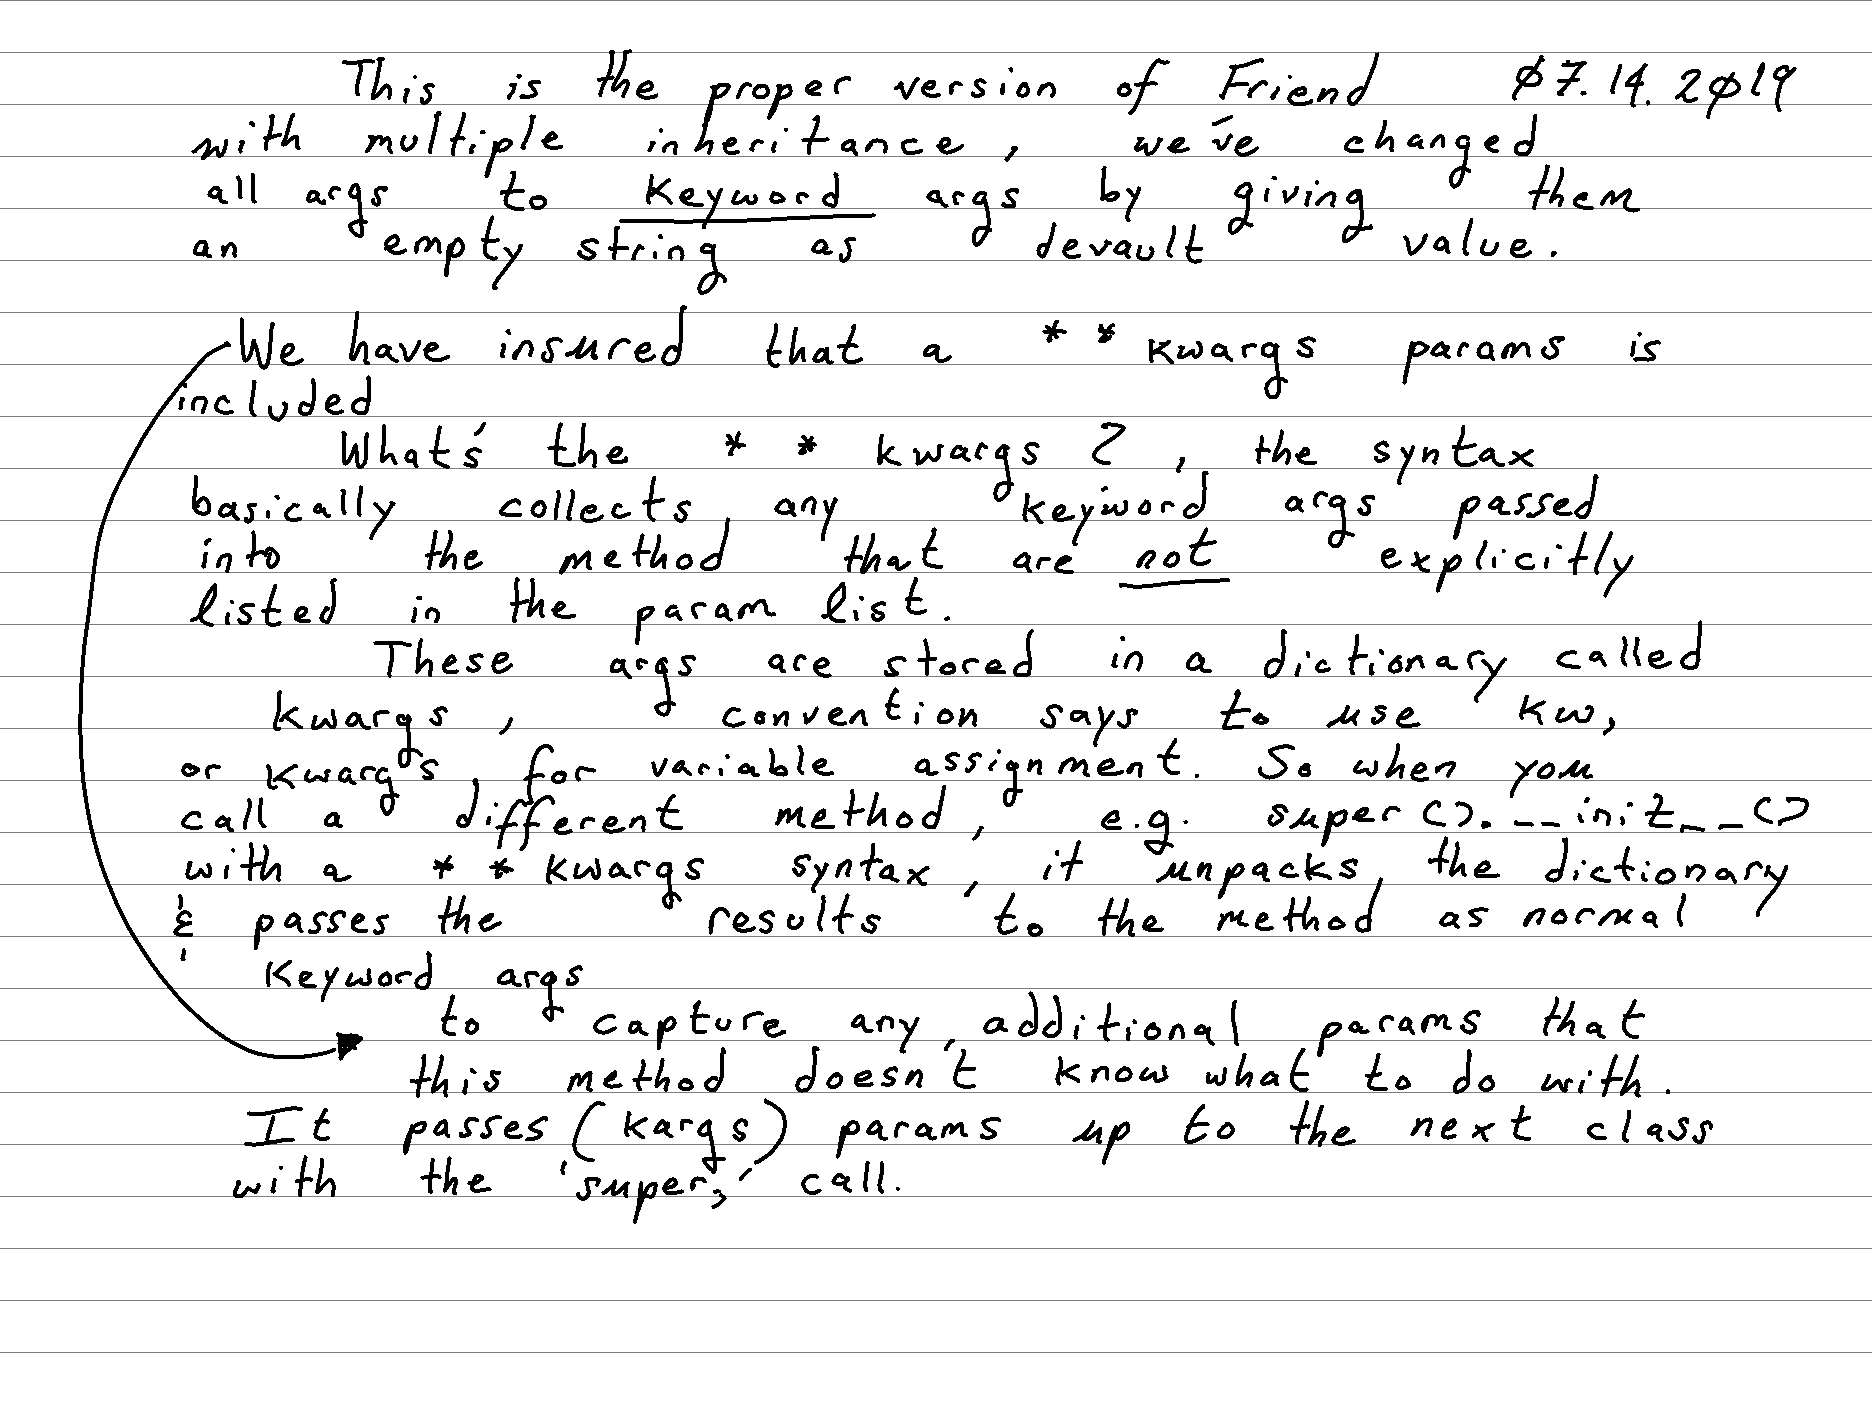 This is the proper version of Friend Ø7.14.2Ø19
with multiple inheritance, we've changed
all args to Keyword args by giving them
an empty string as devault value.
We have insured that a **kwargs params is
included
What's the **kwargs?, the syntax
basically collects any keyword args passed
into the method that are not explicitly
listed in the param list.
These args are stored in a dictionary called
kwargs, convention says to use kw,
or kwargs, for variable assignment. So when you
call a different method, e.g. super().__init__()
with a **kwargs syntax, it unpacks the dictionary
& passes the results to the method as normal
Keyword args
to capture any additional params that
this method doesn't know what to do with.
It passes (kargs) params up to the next class
with the 'super,' call.